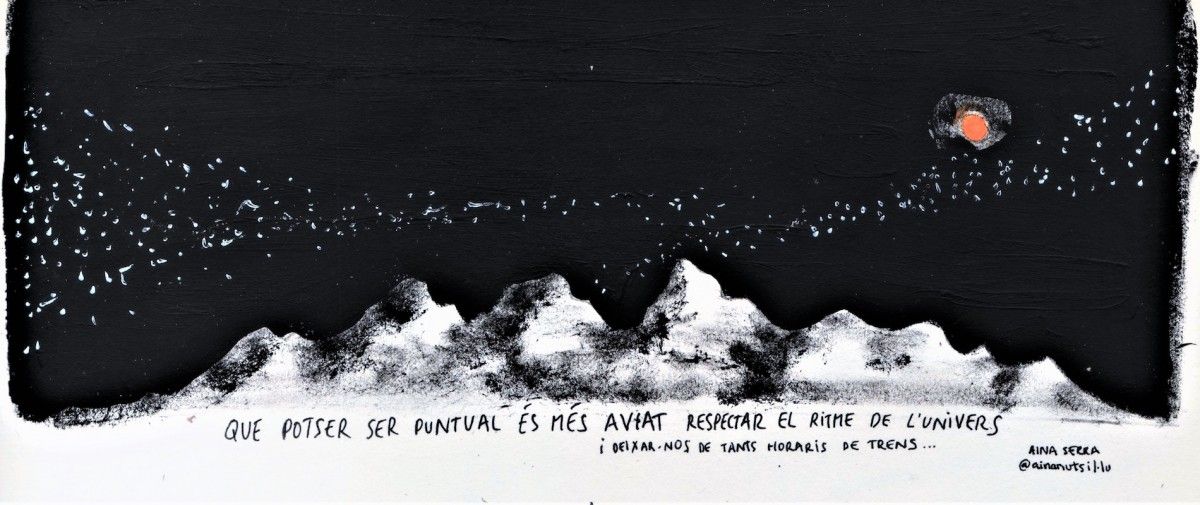 QUE POTSER SER PUNTUAL ÉS MÉS AVIAT RESPECTAR EL RITME DE L'UNIVERS
i DEIXAR-NOS DE TANTS HORARIS DE TRENS...
AINA SERRA
@ainanutsil·lu